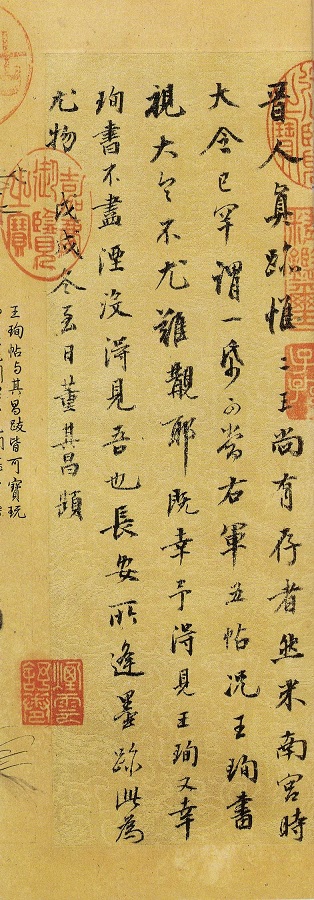 晉人真跡惟二王尚有存者然米南宮時
大令已罕謂一帋可當右軍五帖況王珣書
視大令不尤難覯耶既幸予得見王珣又幸
珣書不盡湮沒得見吾也長安所逢墨跡此為
尤物 戊戌冬至日董其昌題
嘉慶御覽之寶
王珣帖与其昌跋皆可寶玩